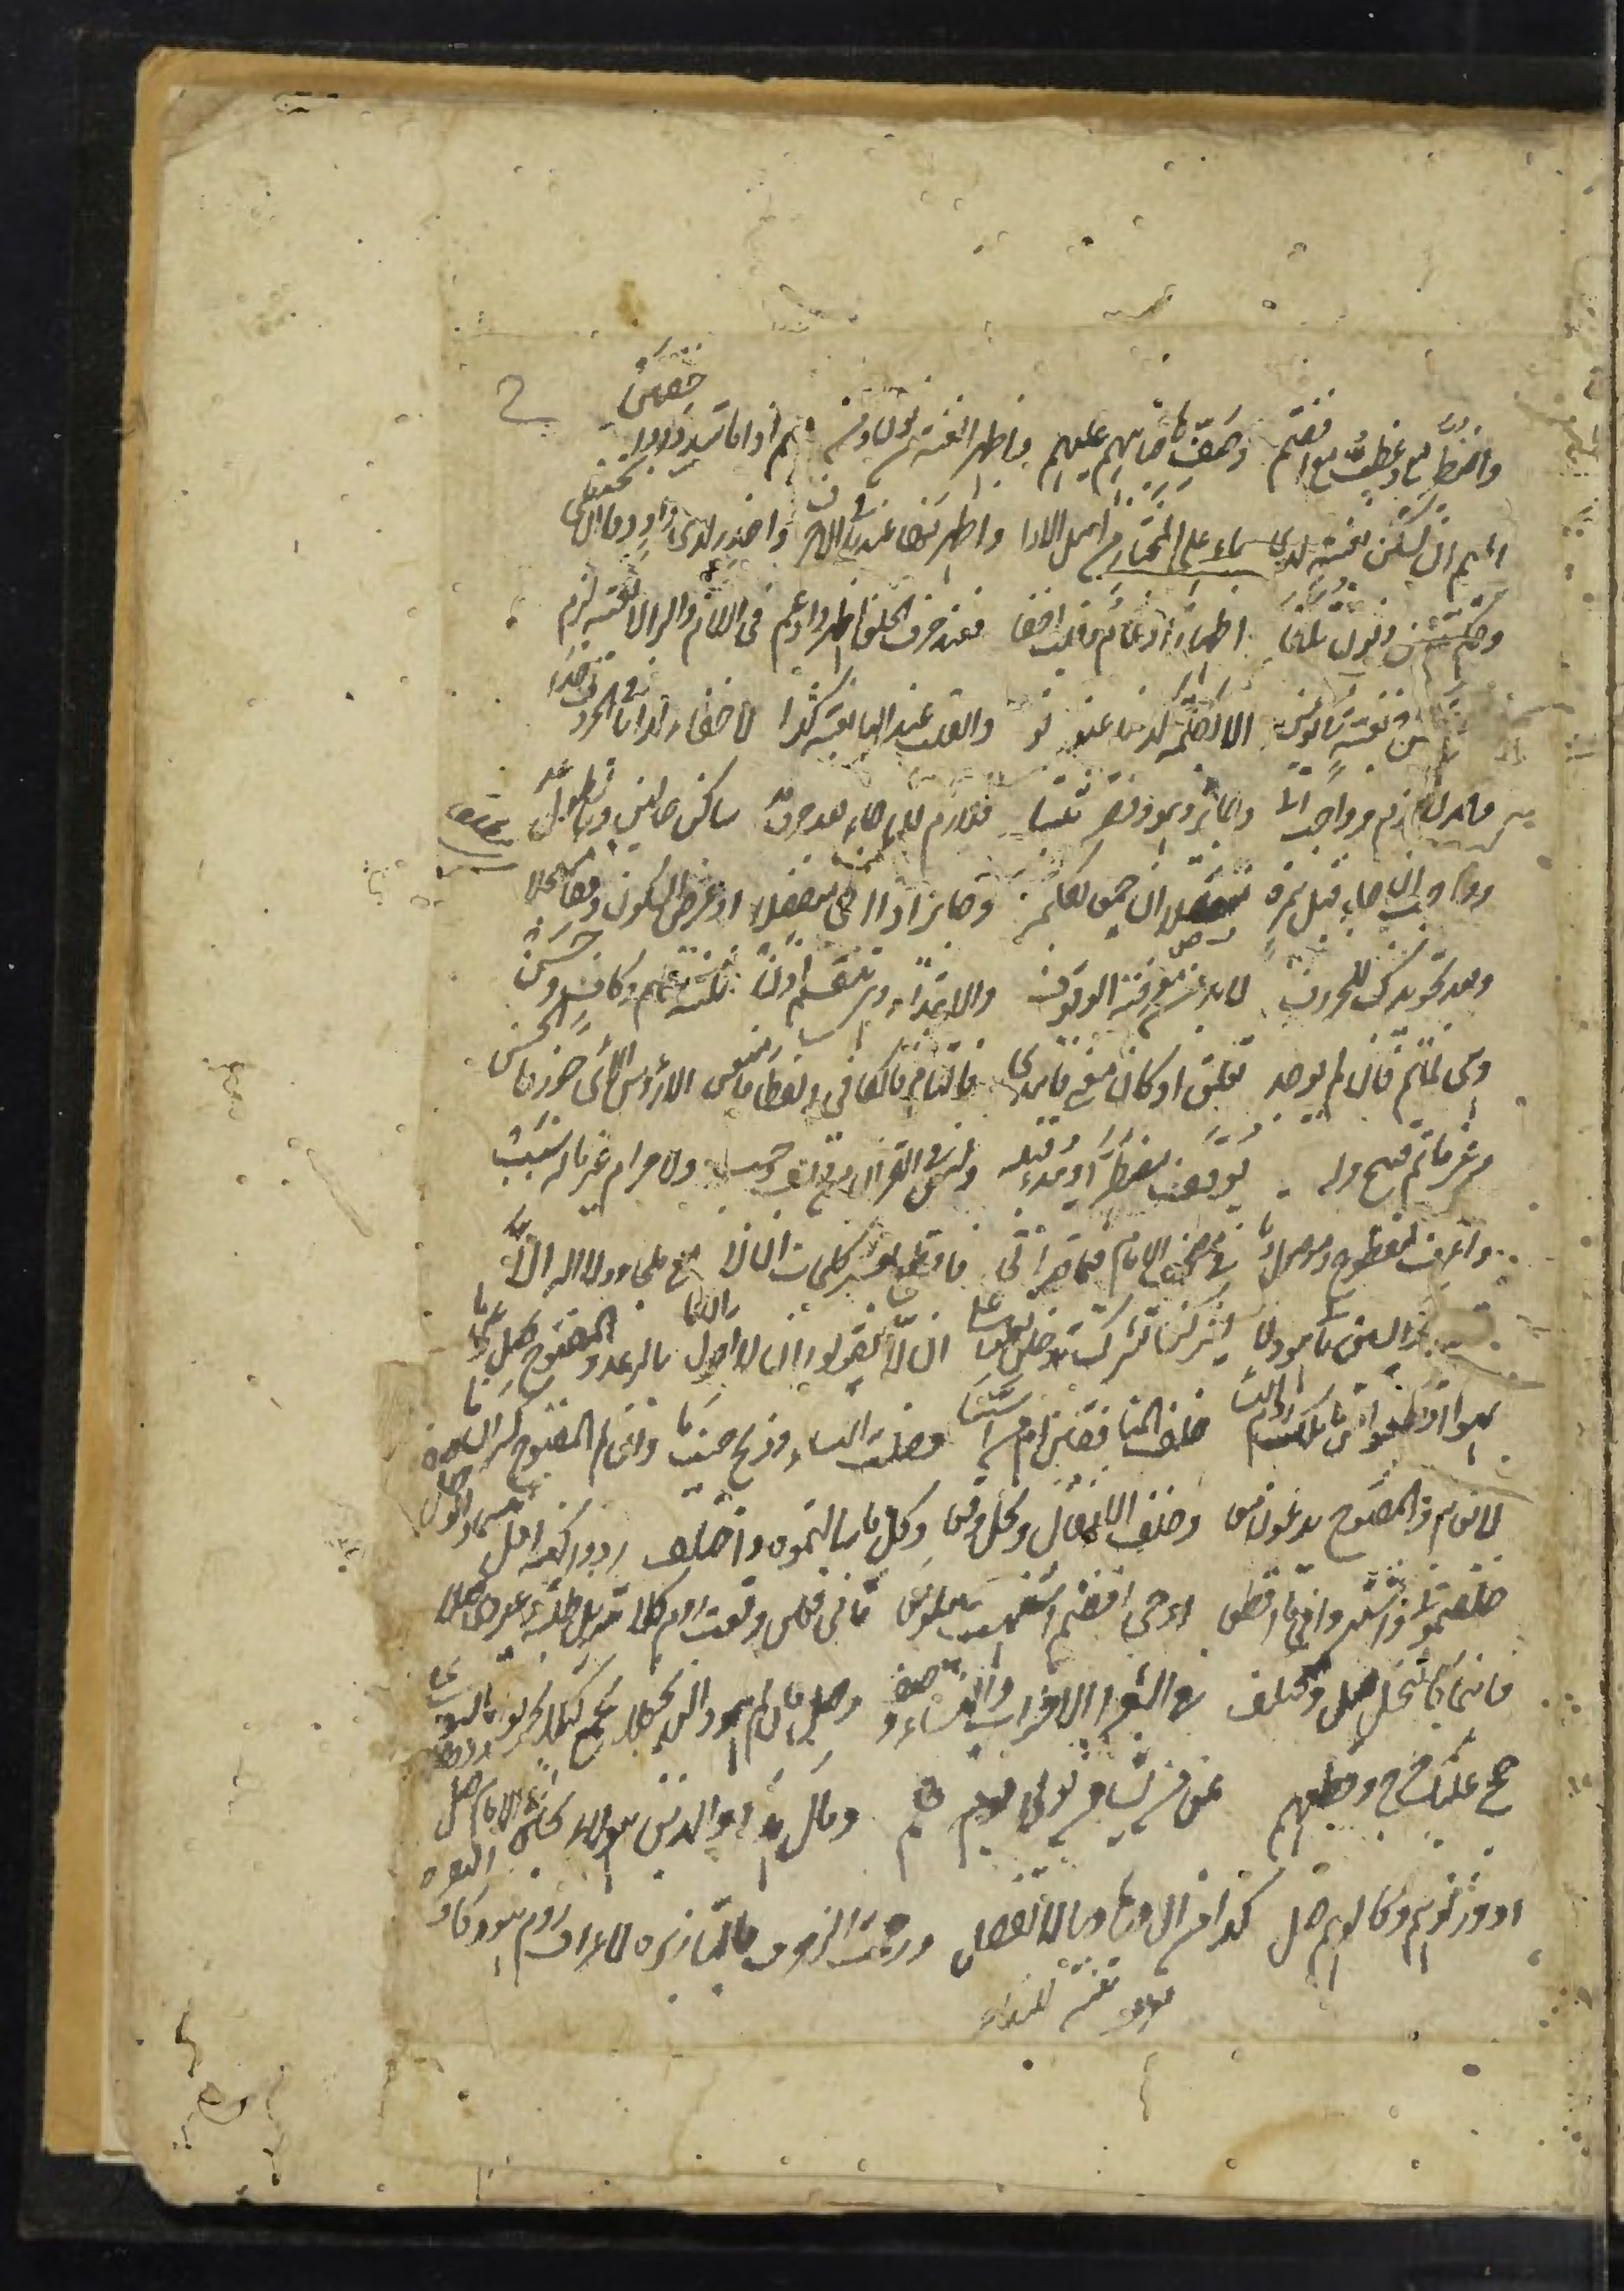 واضطر مع وعظت مع افضتم وصف ها جباههم عليهم واظهر الغنة من نون ومن ميم اذا ما شددا واخفين
الميم ان تسكن بغنة لدى باء على المختار من اهل الادا واظهرنها عند باقي الاحرف واحذر لدى واو وفا ان تختفي
وحكم تنوين ونون يلفى اظهار ادغام وقلب اخفا فعند حرف الحلق اظهر وادغم في اللام والرا لا بغنة لزم
بغنة في يومن الا بكلمة كدنيا عنونوا والقلب عند البا بغنة كذا لاخفاء لدى باقي الحروف اخذا
والمد لازم وواجب اتى وجائز وهو وقصر ثبتا فلازم ان جاء بعد حرف مد ساكن حالين وبالطول يمد
وواجب ان جاء قبل همزة متصلا ان جمعا بكلمة وجائز اذا اتى منفصلا او عرض السكون وقفا مسجلا
وبعد تجويدك للحروف لا بد من معرفة الوقوف والابتداء وهي تقسم اذن ثلثة تام وكاف وحسن
وهي لما تم فان لم يوجد تعلق او كان معنى فابتدي فالتام فالكافي ولفظا فامنعن الا رؤس الآي جوز فالحسن
وغير ما تم قبيح وله يوقف مضطرا ويبدا قبله وليس في القران من وقف وجب ولا حرام غير ما له سبب
واعرف لمقطوع وموصول وتا في مصحف الامام فيما قد اتى فاقطع بعشر كلمات ان لا مع ملجا ولا اله الا
ياسين ثاني هود لا يشركن تشرك يدخلن تعلوا على ان لا يقولوا لا اقول ان ما بالرعد والمفتوح صل وعن ما
نهوا اقطعوا من ما ملك روم النسا خلف المنافقين ام من اسسا فصلت النساء وذبح حيث ما وان لم المفتوح كسر ان ما
لانعام والمفتوح يدعون معا وخلف الانفال ونحل وقعا وكل ما سالتموه واختلف ردوا كذا قل بئسما والوصل صف
خلفتموني واشتروا في ما اقطعا اوحي افضتم اشتهت يبلو معا ثاني فعلن وقعت روم كلا تنزيل شعراء وغيرها صلا
فاينما كالنحل صل ومختلف في الشعرا الاحزاب والنساء وصف وصل فان لم هود الن نجعلا نجمع كيلا تحزنوا تاسوا على
حج عليك حرج وقطعهم عن من يشاء من تولى يوم هم ومال هذا والذين هؤلاء تحين في الامام صل
او وزنوهم وكالوهم صل كذا من ال وها ويا لا تفصل ورحمت الزخرف بالتا زبره لاعراف روم هود كاف البقره